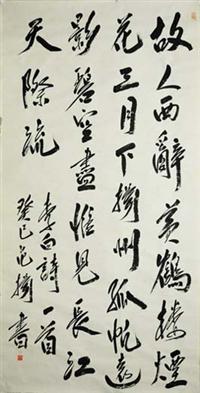 故人西辭黄鶴楼煙
花三月下揚州孤帆遠
影碧空盡惟見長江
天際流
李白詩一首
癸巳范揚書